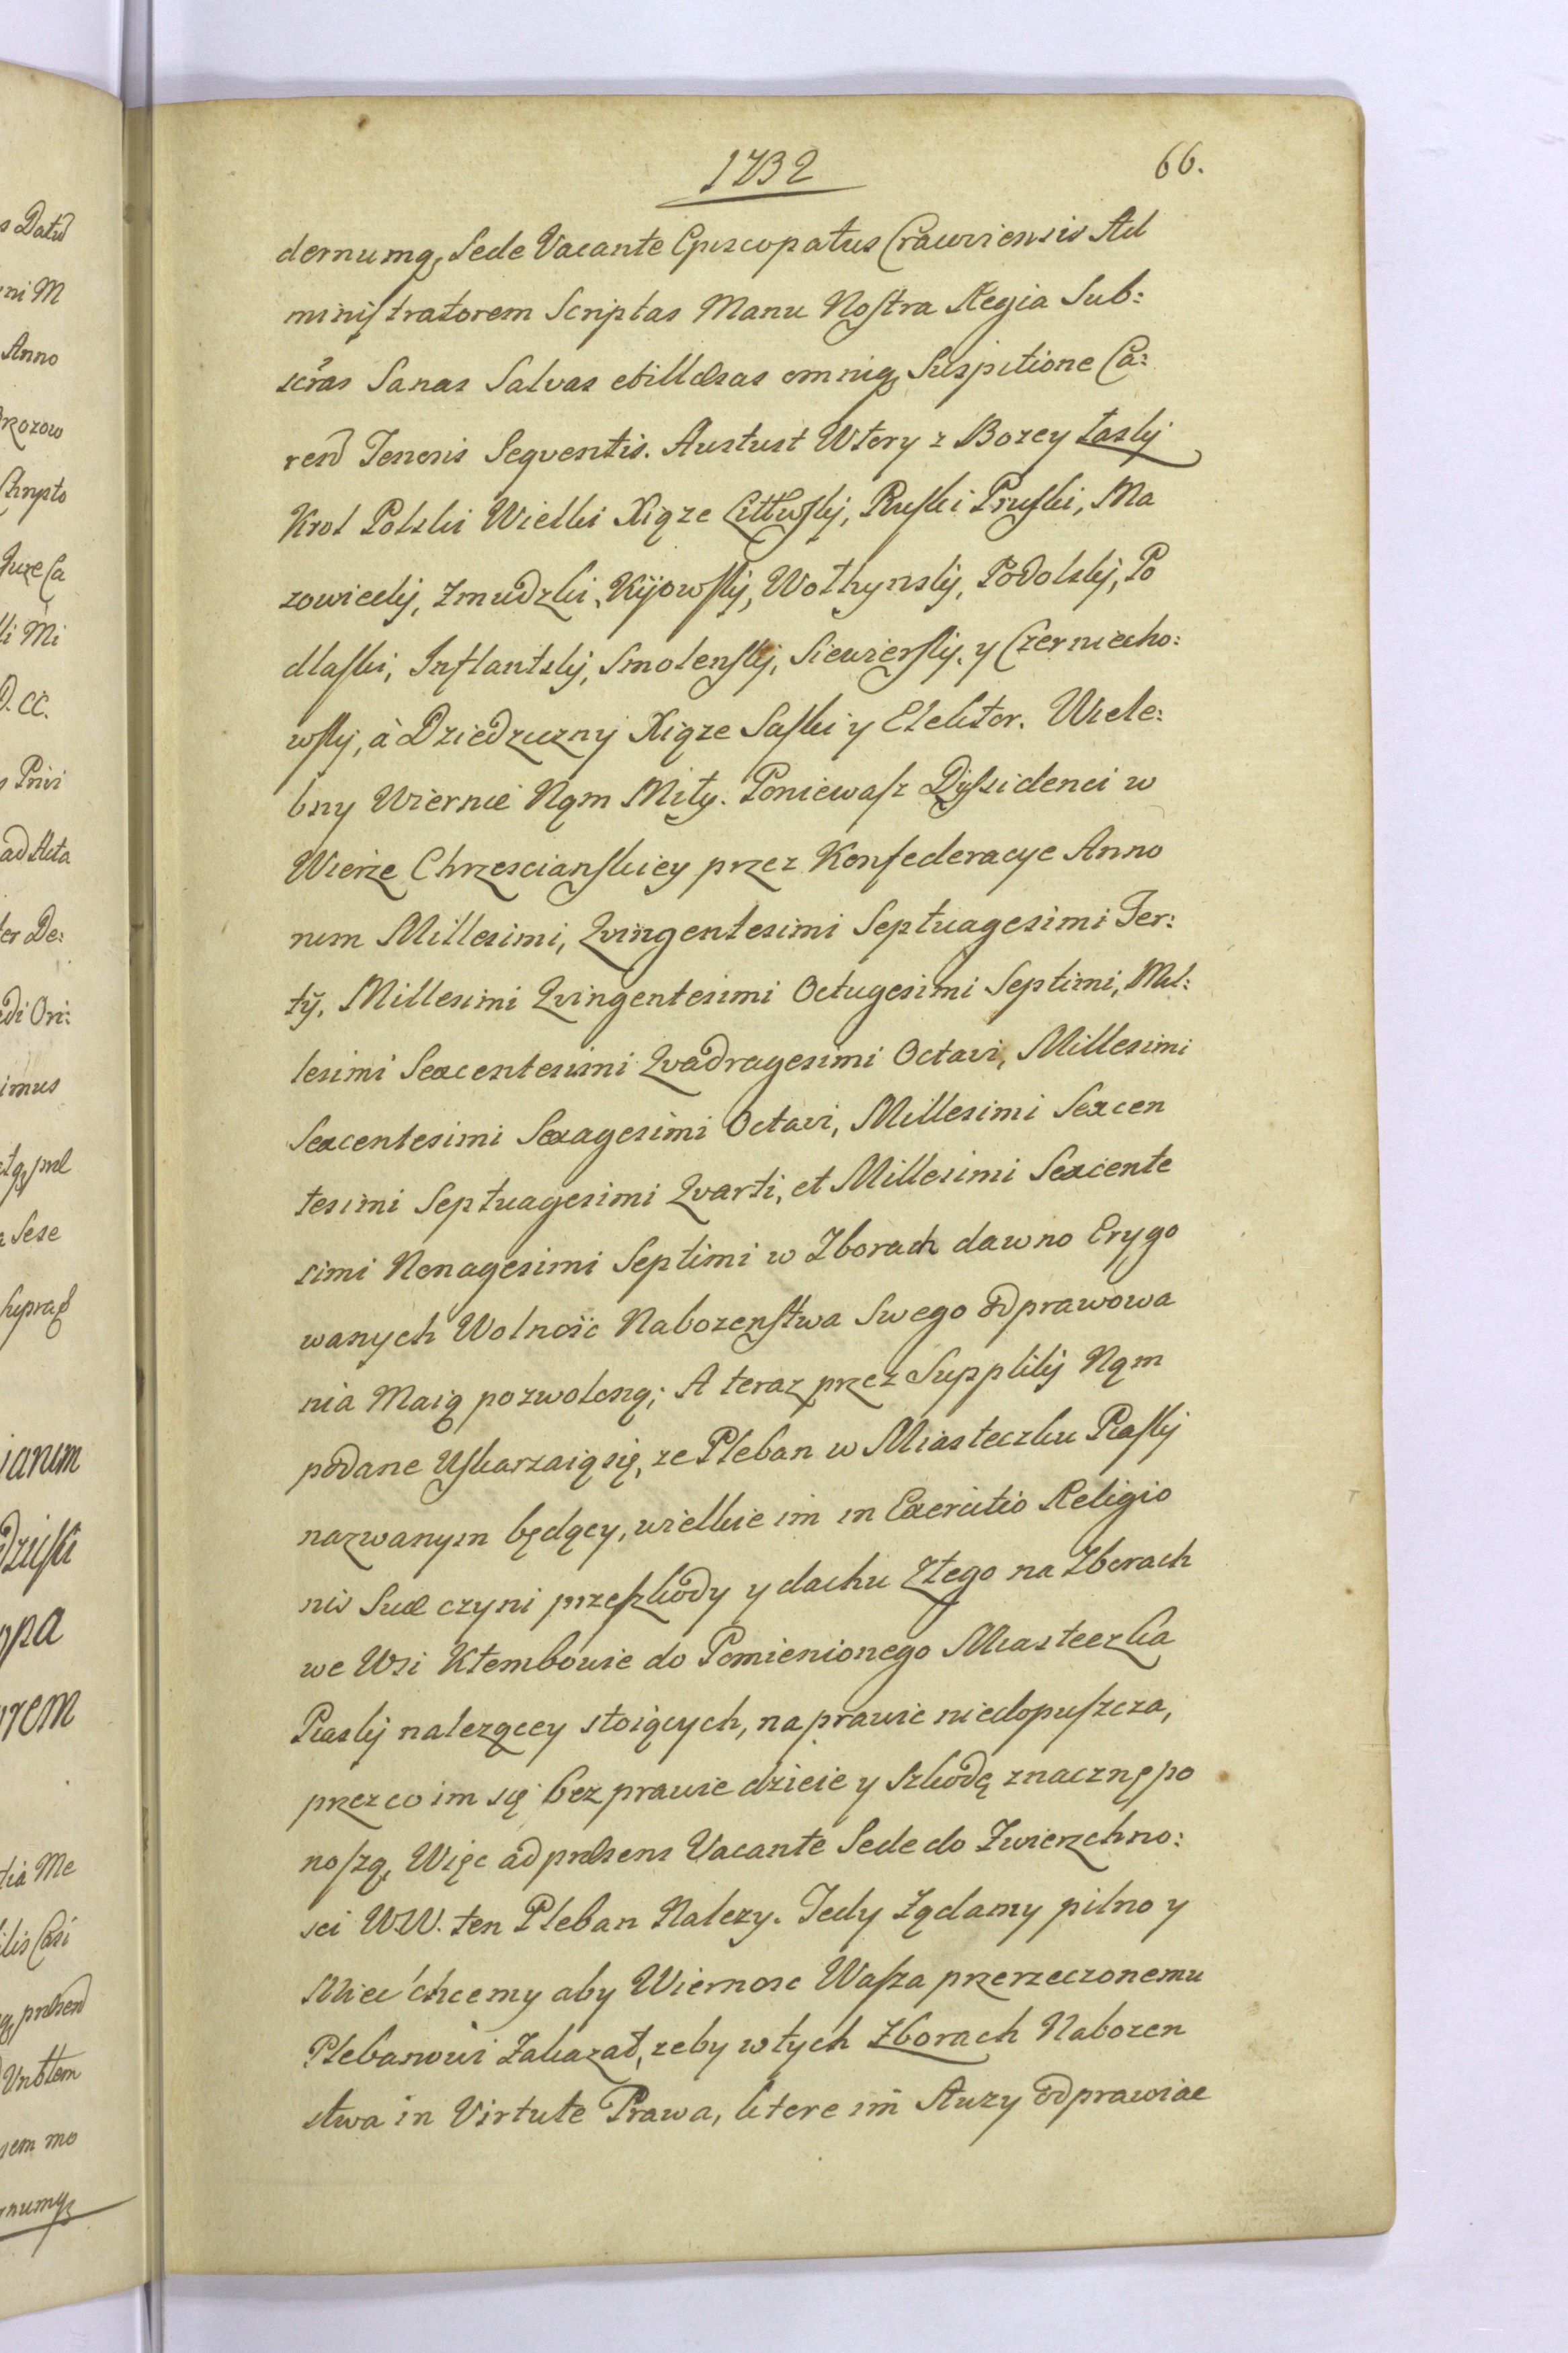 1732
66.
dernumq. Sede Vacante Episcopatus Cracoviensis Ad
ministratorem Scriptas Manu Nostra Regia Sub:
scras Sanas Salvas et illæsas omniq. Suspitione Ca:
rend Tenoris Sequentis. Austust Wtory z Bozey Łaskj
Krol Polski Wielki Xiąze Littwskj, Ruski Pruski, Ma
zowieckj, Zmudzki, Kijowskj, Wołhynskj, Podolskj, Po
dlaski, Inflantskj, Smolenskj, Siewierskj, y Czerniecho:
wskj, à Dziedziczny Xiąze Saski y Elektor. Wiele:
bny Wiernie Nąm Miły. Poniewasz Dyssidenci w
Wierze Chrzescianskiey przez Konfederacye Anno
rum Millesimi, Qvingentesimi Septuagesimi Ter:
tij, Millesimi Qvingentesimi Octugesimi Septimi, Mil:
lesimi Sexcentesimi Qvadragesimi Octavi, Millesimi
Sexcentesimi Sexagesimi Octavi, Millesimi Sexcen
tesimi Septuagesimi Qvarti, et Millesimi Sexcente
simi Nonagesimi Septimi w Zborach dawno Erygo
wanych Wolnosc Nabozenstwa Swego odprawowa
nia Maią pozwoloną; A teraz przez Supplikj Nąm
podane Uskarzaią się, ze Pleban w Miasteczku Piaskj
nazwanym będący, wielkie im in Exercitio Religio
nis Suæ czyni przeszkody y dachu Złego na Zborach
we Wsi Kłembowie do Pomienionego Miasteczka
Piaskj nalezącey stoiących, naprawic niedopuszcza,
przez co im się bezprawie dzieie y Szkodę znaczną po
noszą, Więc ad præsens Vacante Sede do Zwierzchno:
sci WW. ten Pleban Nalezy. Tedy Ządamy pilno y
Miec chcemy aby Wiernosc Wasza przerzeczonemu
Plebanowi Zakazał, zeby w tych Zborach Nabozen
stwa in Virtute Prawa, ktore im Słuzy odprawiac